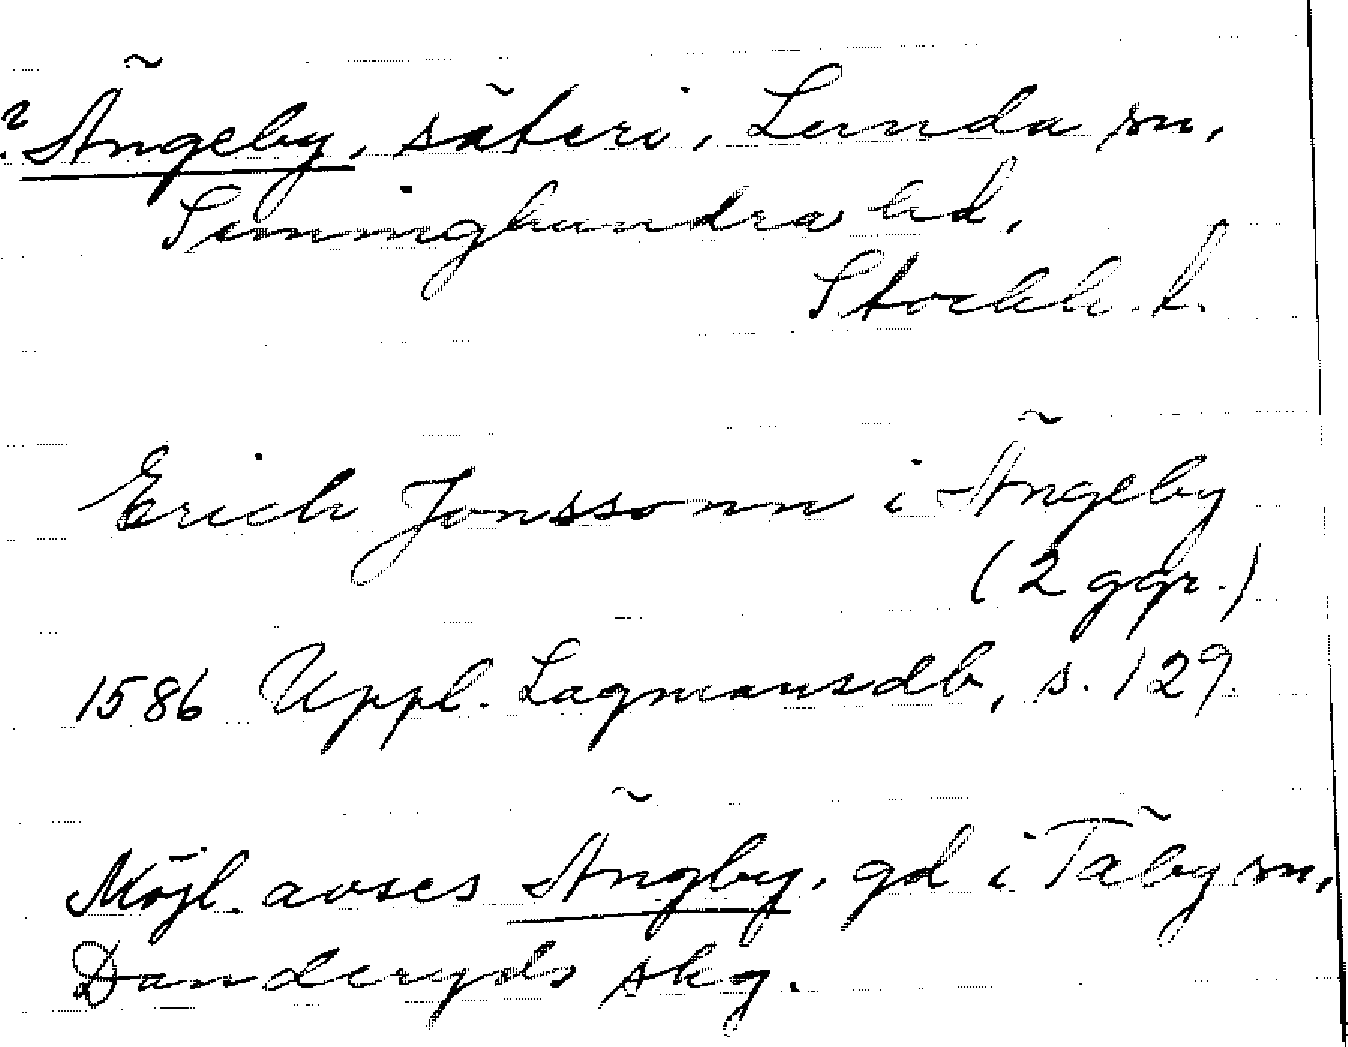 ? Ängeby, säteri, Lunda sn,
Seminghundra hd,
Stockh. l.
Erich Jonssonn i Ängeby
(2 ggr.)
1586 Uppl. Lagmansdb, s. 129
Möjl. avses Ängby, gd i Täby sn,
Danderyds skg.